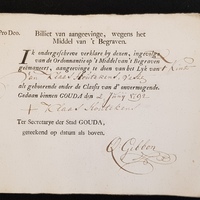 Pro Deo. Billiet van aangeevinge, wegens het
Middel van 't Begraven.
IK ondergeschreve verklare by deezen, ingevolge
van de Ordonnantie op 't Middel van 't Begraven
geëmaneert, aangevinge te doen van het Lyk van 't Kind
van Klaas
als gehoorende onder de Classis van d' onvermogende.
Gedaan binnen GOUDA den 2 Juny
Klaas
Ter Secretarye der Stad GOUDA,
geteekend op datum als boven,